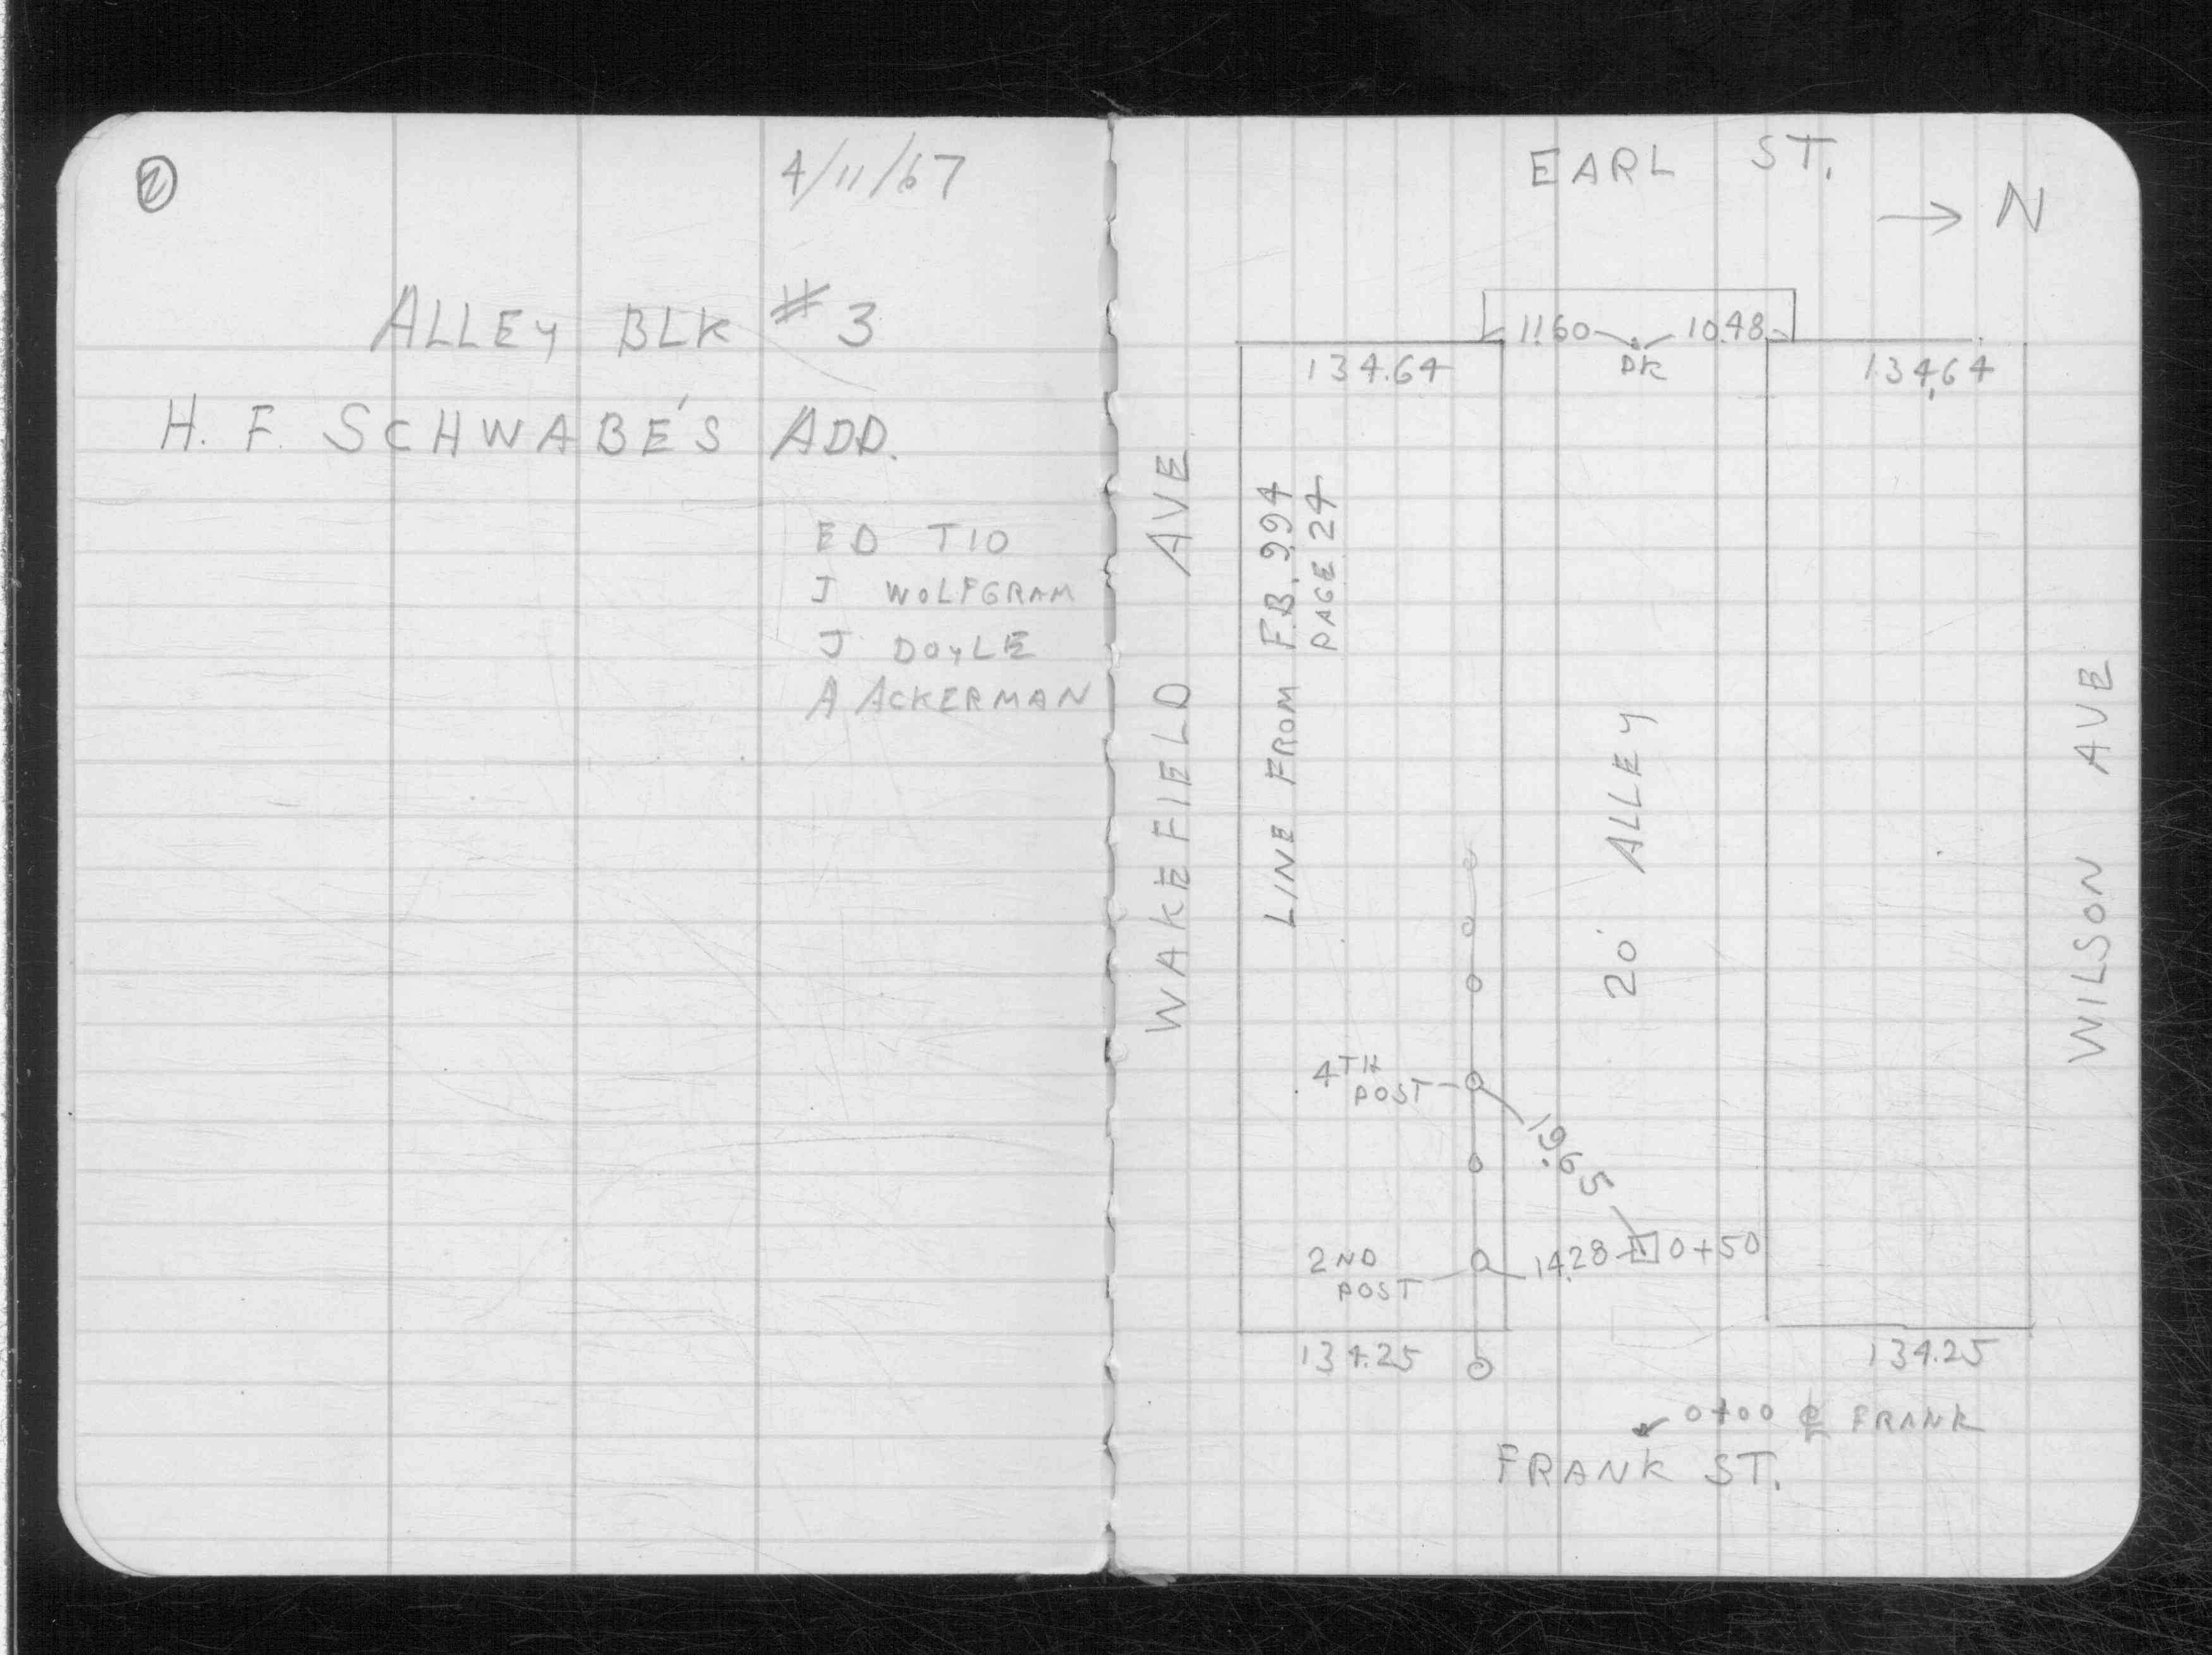 2
4/11/67
ALLEY BLK # 3
H. F. SCHWABE'S ADD.
ED TIO
J WOLFGRAM
J DOYLE
A ACKERMAN
EARL ST.
→ N
11.60 10.48
PK
134.64
134.64
WAKEFIELD AVE
LINE FROM F.B. 994
PAGE 24
20' ALLEY
WILSON AVE
4TH
POST
19.65
2ND
POST
14.28
0+50
134.25
134.25
0+00 ℄ FRANK
FRANK ST.